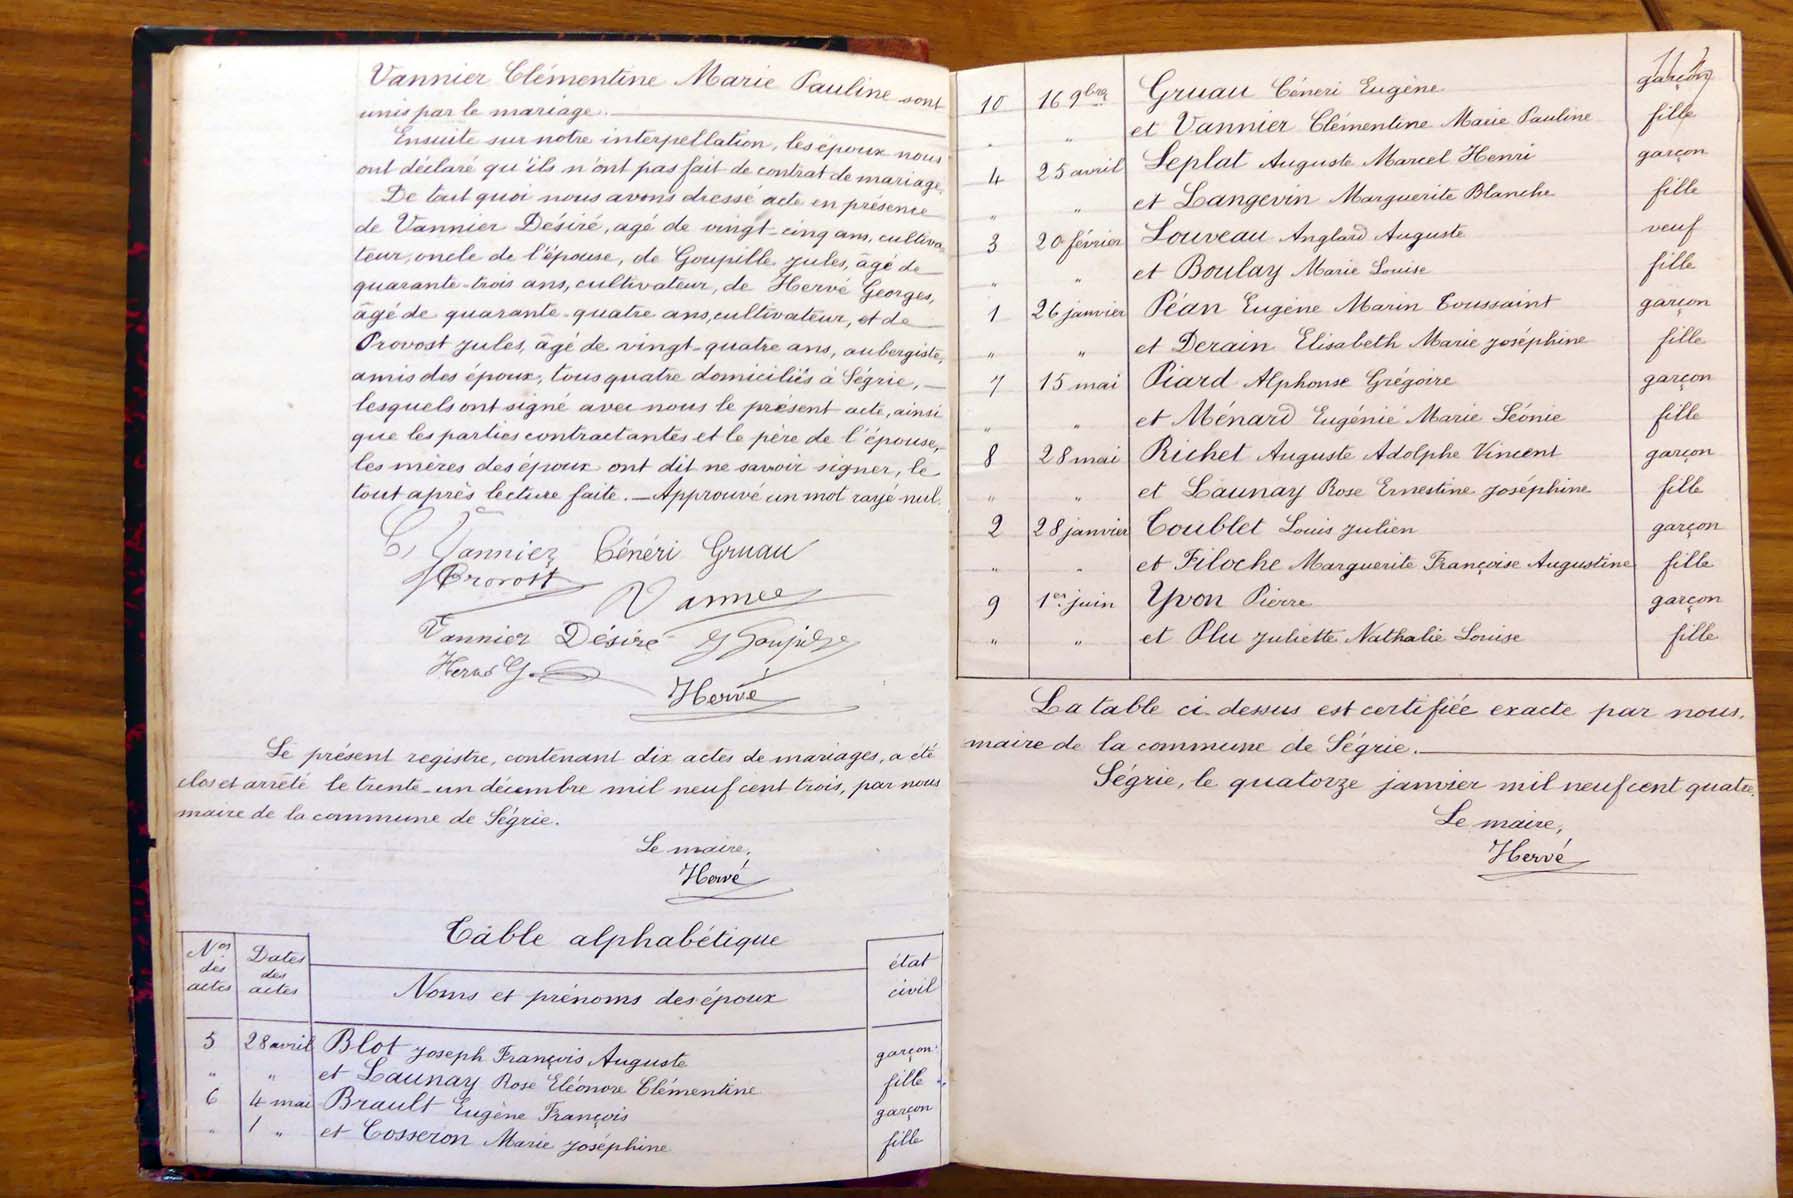 Vannier Clémentine Marie Pauline sont
unis par le mariage.
Ensuite sur notre interpellation, les époux nous
ont déclaré qu'ils n'ont pas fait de contrat de mariage.
De tout quoi nous avons dressé acte en présence
de Vannier Désiré, agé de vingt-cinq ans, cultiva-
teur, oncle de l'épouse, de Goupille Jules, âgé de
quarante-trois ans, cultivateur, de Hervé Georges,
âgé de quarante-quatre ans, cultivateur, et de
Provost Jules, âgé de vingt-quatre ans, aubergiste,
amis des époux, tous quatre domiciliés à Ségrie,
lesquels ont signé avec nous le présent acte, ainsi
que les parties contractantes et le père de l'épouse,
les mères des époux ont dit ne savoir signer, le
tout après lecture faite. — Approuvé un mot rayé nul.
C Vannier Cénéri Gruau
J Provost Vannier
Vannier Désiré J Goupille
Hervé G.
Hervé
Le présent registre, contenant dix actes de mariages, a été
clos et arrêté le trente-un décembre mil neuf cent trois, par nous
maire de la commune de Ségrie.
Le maire,
Hervé
Table alphabétique
Nos des actes Dates des actes Noms et prénoms des époux état civil
5 28 avril Blot Joseph François Auguste garçon
" " et Launay Rose Eléonore Clémentine fille
6 4 mai Brault Eugène François garçon
" " et Cosseron Marie Joséphine fille
10 16 9bre Gruau Céneri Eugène garçon
" " et Vannier Clémentine Marie Pauline fille
4 25 avril Leplat Auguste Marcel Henri garçon
" " et Langevin Marguerite Blanche fille
3 20 février Louveau Anglard Auguste veuf
" " et Boulay Marie Louise fille
1 26 janvier Péan Eugène Marin Toussaint garçon
" " et Derain Elisabeth Marie Joséphine fille
7 15 mai Piard Alphonse Grégoire garçon
" " et Ménard Eugénie Marie Léonie fille
8 28 mai Richet Auguste Adolphe Vincent garçon
" " et Launay Rose Ernestine Joséphine fille
2 28 janvier Toublet Louis Julien garçon
" " et Filoche Marguerite Françoise Augustine fille
9 1er juin Yvon Pierre garçon
" " et Plu Juliette Nathalie Louise fille
La table ci-dessus est certifiée exacte par nous,
maire de la commune de Ségrie.
Ségrie, le quatorze janvier mil neuf cent quatre.
Le maire,
Hervé